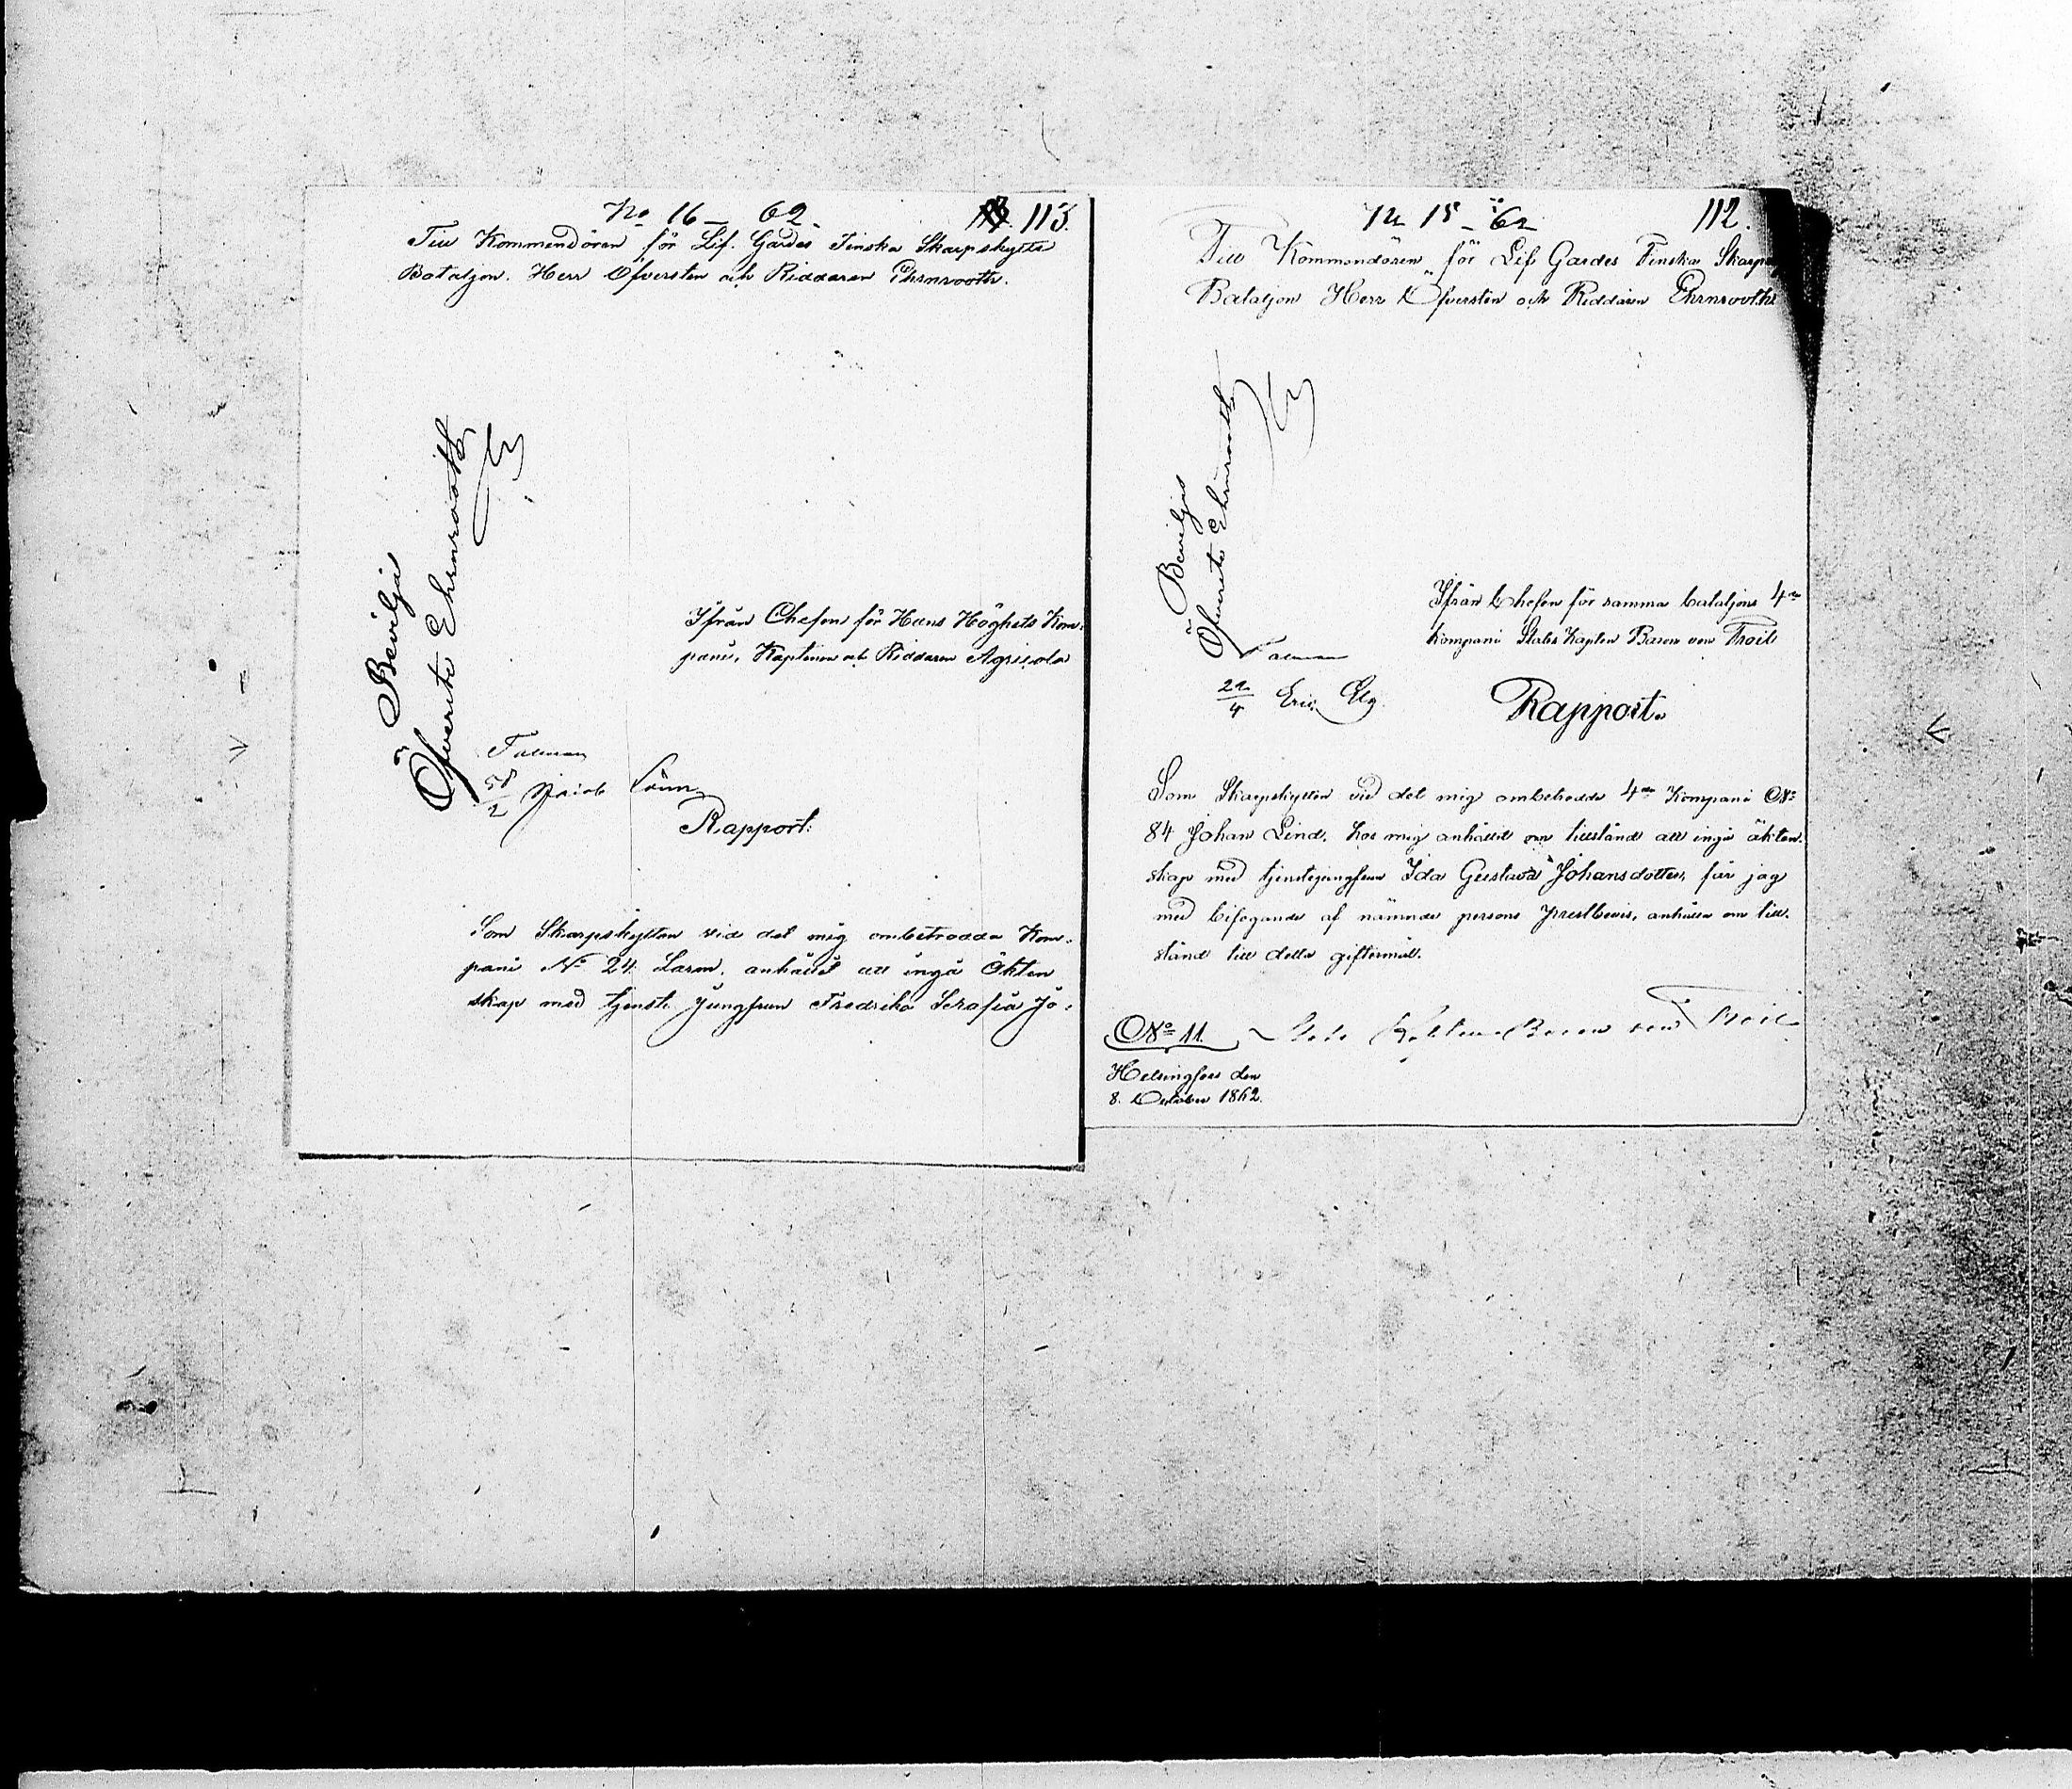 No 16 – 62.
113.
Till Kommendören för Lif. Gardes Finska Skarpskytte
Bataljon. Herr Öfversten och Riddaren Ehrnrooth.
Beviljas
Öfverste Ehrnrooth
Ifrån Chefen för Hans Höghets Kom-
pani, Kaptenen och Riddaren Agricola
Talman
58/2 Jacob
Rapport:
Som Skarpskytten vid det mig ombetrodda Kom-
pani No 24. Larm. anhållit att ingå Ökten
skap med tjenste Jungfrun Fredrika Serafia Jo-
No 15 – 62
112.
Till Kommendören för Lif Gardes Finska Skarp
Bataljon Herr Öfversten och Riddaren Ehrnrooth
Beviljas
Öfverste Ehrnrooth
Ifrån Chefen för samma bataljons 4de
Kompani Stabs Kapten Baron von Troil
Talman
22/4 Eric Elg.
Rapport.
Som Skarpskytten vid det mig ombetrodda 4de Kompani No
84 Johan Lind, hos mig anhållit om tillstånd att ingå äkten-
skap med tjenstejungfrun Ida Gustava Johansdotter, får jag
med bifogande af nämnde persons Prestbevis, anhålla om till-
stånd till detta giftermål.
No 11. Stabs Kapten Baron von Troil
Helsingfors den
8. October 1862.